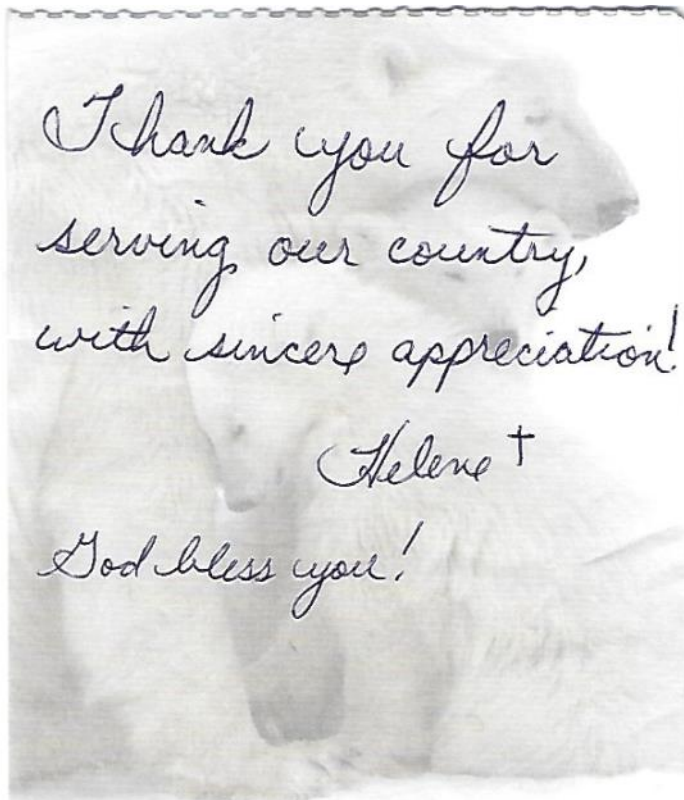 Thank you for
serving our country,
with sincere appreciation!
Helene †
God bless you!